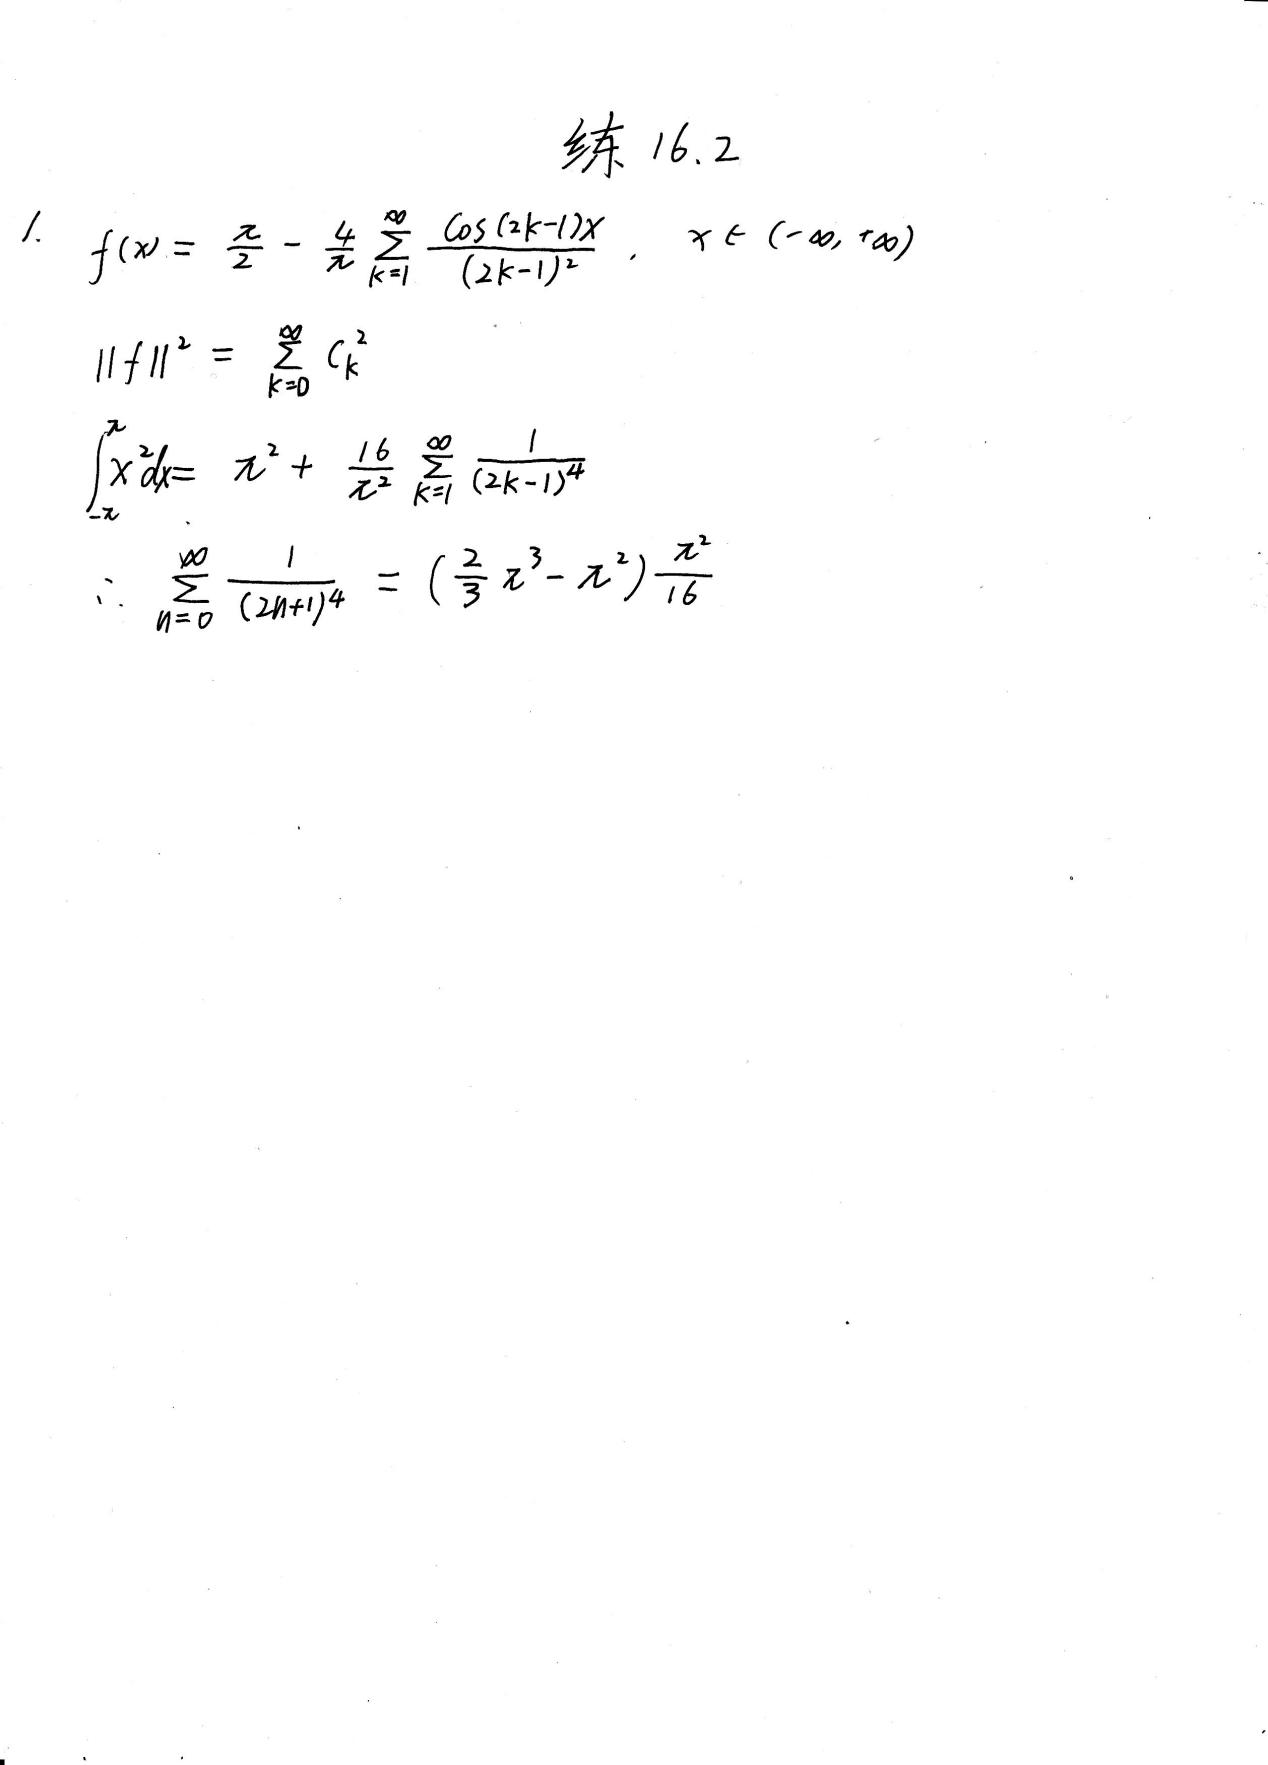 练 16.2
1. f(x) = π/2 - 4/π ∑_{k=1}^{∞} cos(2k-1)x / (2k-1)², x ∈ (-∞, +∞)
||f||² = ∑_{k=0}^{∞} C_k²
∫_{-π}^{π} x²dx = π² + 16/π² ∑_{k=1}^{∞} 1/(2k-1)⁴
∴ ∑_{n=0}^{∞} 1/(2n+1)⁴ = (2/3 π³ - π²) π²/16